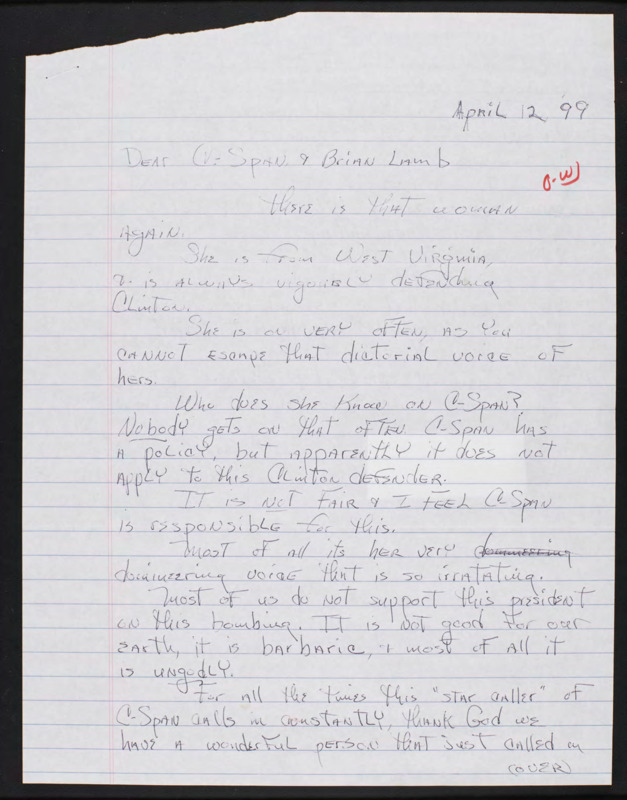 April 12 99
Dear C-Span & Brian Lamb
O.W
There is that woman
again.
She is from West Virginia,
& is always vigorously defending
Clinton.
She is on very often, as you
cannot escape that dictorial voice of
hers.
Who does she know on C-Span?
Nobody gets on that often C-Span has
a policy, but apparently it does not
apply to this Clinton defender.
It is not fair & I feel C-Span
is responsible for this.
Most of all its her very domineering
domineering voice that is so irratating.
Most of us do not support this president
on this bombing. It is not good for our
earth, it is barbaric, & most of all it
is ungodly.
For all the times this "star caller" of
C-Span calls in constantly, thank God we
have a wonderful person that just called in
(over)